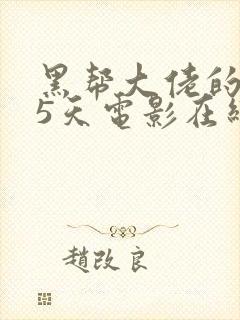 黑帮大佬的
5天电影在线
趙改良